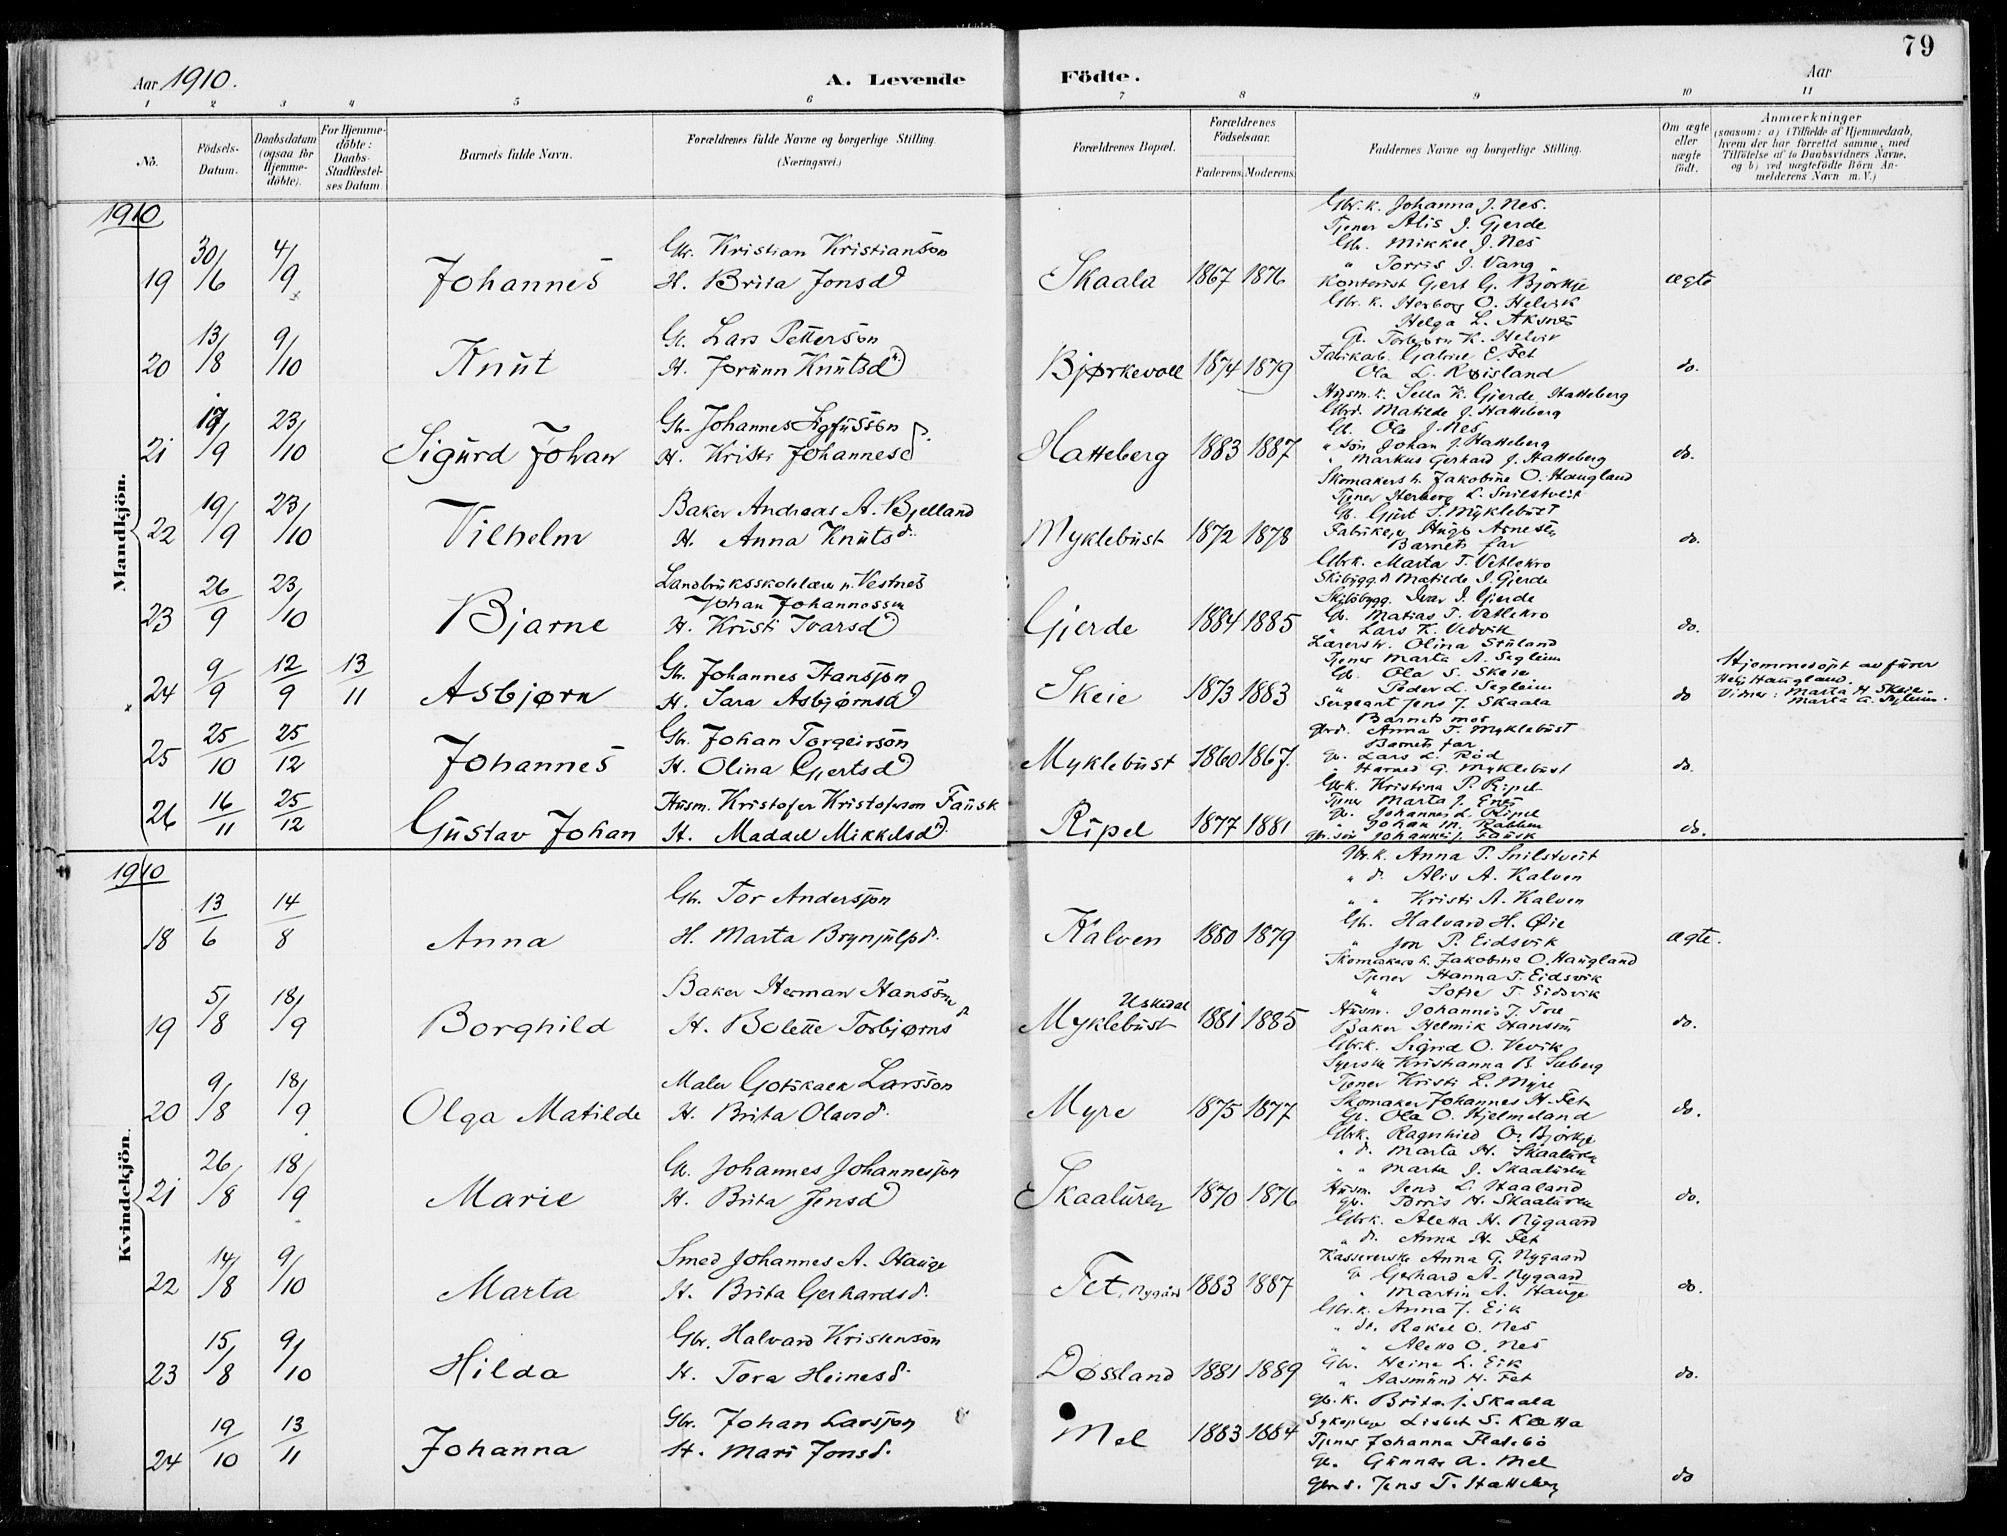 79
Aar 1910.
A. Levende Födte.
Aar
1 2 3 4 5 6 7 8 9 10 11
No.
Födsels-Datum.
Daabsdatum (ogsaa for Hjemme-döbte).
For Hjemme-döbte: Daabs-Stadfæstel-ses Datum
Barnets fulde Navn.
Forældrenes fulde Navne og borgerlige Stilling. (Næringsvei.)
Forældrenes Bopæl.
Forældrenes Födselsaar.
Faderens. Moderens.
Faddernes Navne og borgerlige Stilling.
Om ægte eller uægte födt.
Anmærkninger
(saasom: a) i Tilfælde af Hjemmedaab, hvem der har forrettet samme, med Tilföielse af to Daabsvidners Navne, og b) ved uægtefödte Börn An-melderens Navn m. V.)
Mandkjön.
1910
19 30/6 4/9 Johannes
Gbr. Kristian Kristianson
H. Brita Jonsd
Skaala 1867 1876
Gbr. k. Johanna J. Nes.
Tjener Alis J. Gjerde
Gbr. Mikkel J. Nes
" Torris J. Vang
Kontorist Gert G. Björkje
ægte
20 13/8 9/10 Knut
G. Lars Petterson
H. Jorunn Knutsd
Bjørkevoll 1874 1879
Gbr. k. Herborg O. Helvik
Helga L. Aksnes
G. Torbjørn K. Helvik
Fabrikarb. Gabriel E. Fet
Ola L. Røisland
do.
21 17/9 23/10 Sigurd Johan
Gb. Johannes Sigfusson
H. Kristi Johannesd
Hatteberg 1883 1887
Husm. k. Sella K. Gjerde, Hatteberg
Gbrd. Matilde J. Hatteberg
G. Ola J. Nes
" søn Johan J. Hatteberg
" Markus Gerhard J. Hatteberg
do.
22 19/9 23/10 Vilhelm
Baker Andreas A. Bjelland
H. Anna Knutsd.
Myklebust 1872 1878
Skomakers h. Jakobine O. Haugland
Tjener Herborg L. Snilstveit
Gb. Gjert T. Myklebust
Fabrikejer Hugo Arnesen
Barnets far
do.
23 26/9 23/10 Bjarne
Landbruksskolelærer p. Vestnes
Johan Johannessen
H. Kristi Ivarsd
Gjerde 1884 1885
Gbr.k. Marta T. Vetlekro
Skibygg. d Matilde I. Gjerde
Skibsbygg. Ivar I. Gjerde
Gb. Matias T. Vetlekro
" Lars K. Vedvik
do.
24 9/9 12/9 13/11 Asbjørn
Gb. Johannes Hansson
H. Sara Asbjørnsd
Skeie 1873 1883
Lærerh. Olina Stuland
Tjener Marta A. Segleim
Gb. Ola S. Skeie
" Peder L. Segleim
Sergeant Jens J. Skaala
do
Hjemmedöpt av fürer
Helg. Haugland.
Vidner: Marta H. Skeie.
Marta A. Segleim.
25 25/10 25/12 Johannes
Gbr. Johan Torgeirson
H. Olina Gjertsd
Myklebust 1860 1867.
Barnets mor
Gbrd. Anna T. Myklebust
Barnets far
Gb. Lars L. Rød
" Harald G. Myklebust
do.
26 16/11 25/12 Gustav Johan
Husm. Kristofer Kristoferson Fausk
H. Maddel Mikkelsd.
Ripel 1877 1881
Gbr.k. Kristina P. Ripel
Tjener Marta J. Enes
Gb. Johannes L. Ripel
" Johan M. Rabben
Gbr. søn Johannes J. Fausk
do.
Kvindekjön.
1910
18 13/6 14/8 Anna
Gbr. Tor Andersson
H. Marta Brynjulfsd.
Kalven 1880 1879
Gbr.k. Anna P. Snilstveit
" d. Alis A. Kalven
" " Kristi A. Kalven
Gb. Halvard H. Øie
" Jon P. Eidsvik
ægte.
19 5/8 18/9 Borghild
Baker Herman Hansson
H. Bolette Torbjørnsd
Uskedal
Myklebust 1881 1885
Skomakers h. Jakobine O. Haugland
Tjener Hanna T. Eidsvik
" Sofie T. Eidsvik
Husm. Johannes J. Tre
Baker Helmik Hansen
do.
20 9/8 18/9 Olga Matilde
Maler Gotskalk Larsson
H. Brita Olavsd.
Myre 1875 1877
Gbr.k. Sigrid O. Vevik
Syerske Kristianna B. Seberg
Tjener Kristi L. Myre
Skomaker Johannes H. Fet
Gb. Ola O. Hjelmeland
do.
21 26/8 18/9 Marie
G. Johannes Johannesson
H. Brita Jensd
Skaaluren 1870 1876
Gbrk. Ragnhild O. Björkje
" d. Marta H. Skaaluren
" " Marta J. Skaaluren
Husm. Jens L. Haaland
Gb. Torris H. Skaaluren
do.
22 14/8 9/10 Marta
Smed Johannes A. Hauge
H. Brita Gerhardsd.
Fet, Nygård 1883 1887
Gbrk. Aletta H. Nygaard
" d. Anna H. Fet
Kassererske Anna G. Nygaard
G. Gerhard A. Nygaard
" Martin A. Hauge
do.
23 15/8 9/10 Hilda
Gbr. Halvard Kristenson
H. Tora Heinesd.
Døssland 1881 1889
Gbr.k. Anna J. Eik
" dt. Rakel O. Nes
" " Aletta O. Nes
Gbr. Heine L. Eik
" Aasmund H. Fet
do.
24 19/10 13/11 Johanna
Gbr. Johan Larsson
H. Mari Jonsd.
Mel 1883 1884
Gbr.k. Brita J. Skaala
Sykepleje Lisbet S. Kletta
Tjener Johanna Flatebø
Gb. Gunnar A. Mel
Gbr s. Jens T. Hatteberg
do